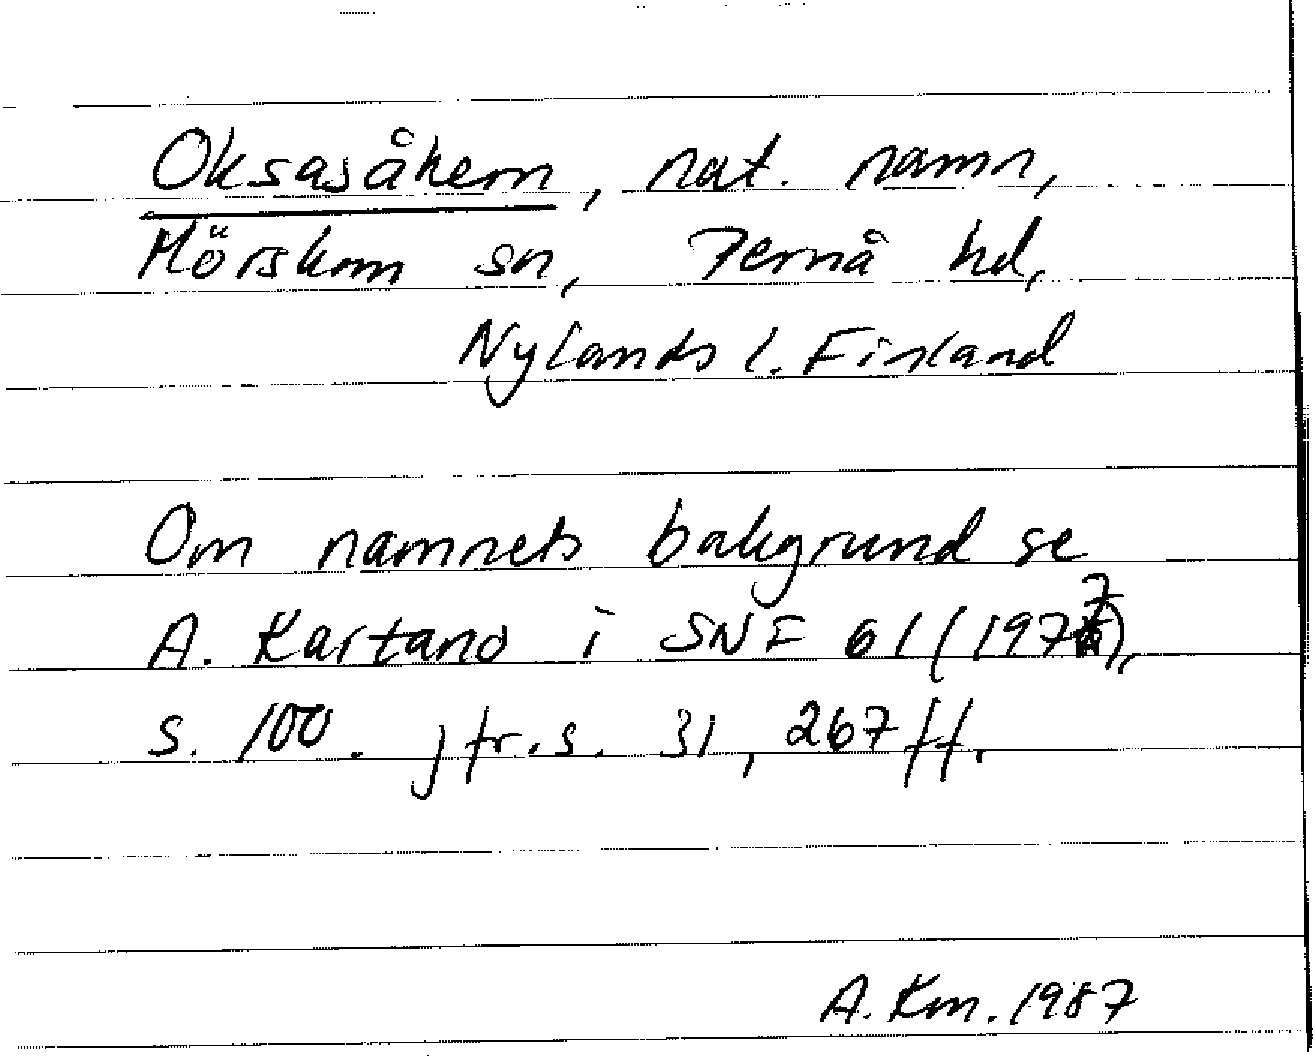 Oksasåkern, nat. namn,
Mörskom sn, Pernå hd,
Nylands l. Finland
Om namnets bakgrund se
A. Kartano i SNF 61 (1977),
s. 100. jfr. s. 31, 267 ff.
A. Km. 1987